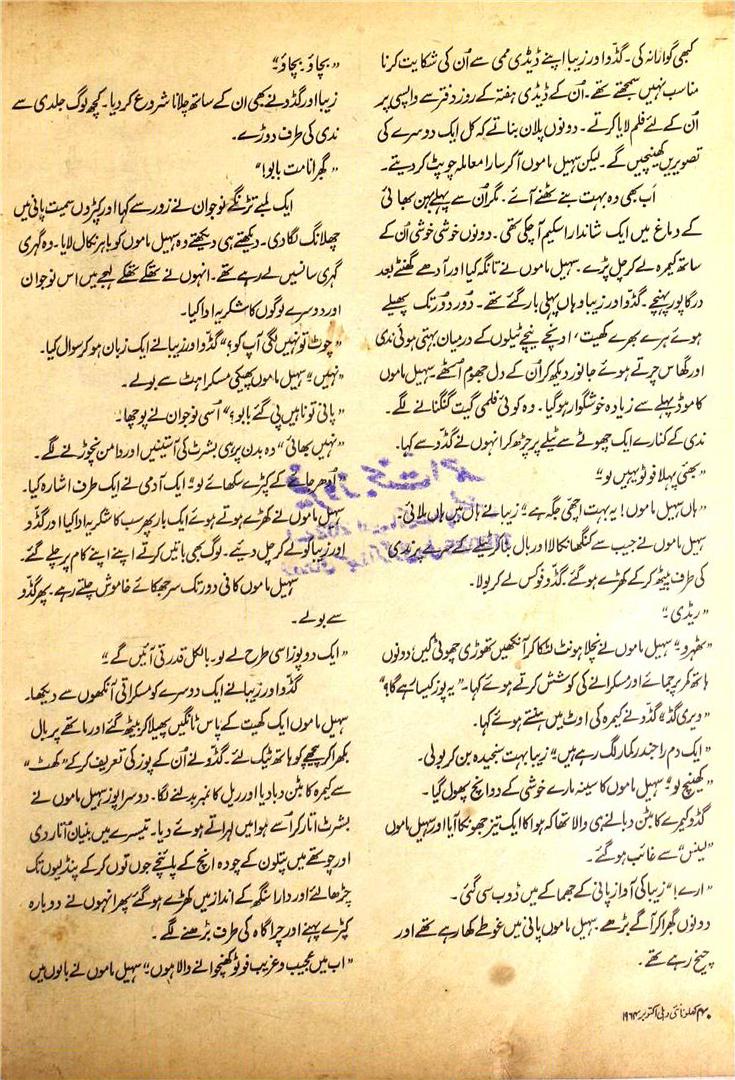 کبھی گوارا نہ کی۔ گڈو اور زیبا اپنے ڈیڈی ممی سے اُن کی شکایت کرنا
مناسب نہیں سمجھتے تھے۔ اُن کے ڈیڈی ہفتہ کے روز دفتر سے واپسی پر
اُن کے لئے فلم لایا کرتے۔ دونوں پلان بناتے کہ کل ایک دوسرے کی
تصویریں کھینچیں گے۔ لیکن سہیل ماموں آکر سارا معاملہ چوپٹ کر دیتے۔
اَب بھی وہ بہت بنے ٹھنے آئے۔ مگر اُن سے پہلے بہن بھائی
کے دماغ میں ایک شاندار اسکیم آچکی تھی۔ دونوں خوشی خوشی اُن کے
ساتھ کیمرہ لے کر چل پڑے۔ سہیل ماموں نے تانگہ کیا اور آدھے گھنٹے بعد
درگاپور پہنچے۔ گڈو اور زیبا وہاں پہلی بار گئے تھے۔ دُور دُور تک پھیلے
ہوئے ہرے بھرے کھیت، اونچے نیچے ٹیلوں کے درمیان بہتی ہوئی ندی
اور گھاس چرتے ہوئے جانور دیکھ کر اُن کے دل جھوم اُٹھے۔ سہیل ماموں
کا موڈ پہلے سے زیادہ خوشگوار ہوگیا۔ وہ کوئی فلمی گیت گنگنانے لگے۔
ندی کے کنارے ایک چھوٹے سے ٹیلے پر چڑھ کر انہوں نے گڈو سے کہا۔
”بھئی پہلا فوٹو یہیں لو“
”ہاں سہیل ماموں! یہ بہت اچھی جگہ ہے“ زیبا نے ہاں میں ہاں ملائی
سہیل ماموں نے جیب سے کنگھا نکالا اور بال بنا کر ٹیلے کے سرے پر ندی
کی طرف پیٹھ کر کے کھڑے ہوگئے۔ گڈو فوکس لے کر بولا۔
”ریڈی۔“
”ٹھہرو۔“ سہیل ماموں نے نچلا ہونٹ لٹکا کر آنکھیں تھوڑی چھوٹی کیں دونوں
ہاتھ کمر پر جمائے اور مسکرانے کی کوشش کرتے ہوئے کہا۔ ”یہ پوز کیسا رہے گا؟“
”ویری گڈ“ گڈو نے کیمرہ کی اوٹ میں ہنستے ہوئے کہا۔
”ایک دم راجندر کمار لگ رہے ہیں“ زیبا بہت سنجیدہ بن کر بولی۔
”کھینچ لو“ سہیل ماموں کا سینہ مارے خوشی کے دو انچ پھول گیا۔
گڈو کیمرے کا بٹن دبانے ہی والا تھا کہ ہوا کا ایک تیز جھونکا آیا اور سہیل ماموں
”لینس“ سے غائب ہوگئے۔
”ارے!“ زیبا کی آواز پانی کے جھماکے میں ڈوب سی گئی۔
دونوں گھبرا کر آگے بڑھے۔ سہیل ماموں پانی میں غوطے کھا رہے تھے اور
چیخ رہے تھے۔
۴۰ کھلونا نئی دہلی اکتوبر ۱۹۶۴
”بچاؤ۔ بچاؤ“
زیبا اور گڈو نے بھی ان کے ساتھ چلانا شروع کر دیا۔ کچھ لوگ جلدی سے
ندی کی طرف دوڑے۔
”گھبرانا مت بابو!“
ایک لمبے تڑنگے نوجوان نے زور سے کہا اور کپڑوں سمیت پانی میں
چھلانگ لگا دی۔ دیکھتے ہی دیکھتے وہ سہیل ماموں کو باہر نکال لایا۔ وہ گہری
گہری سانسیں لے رہے تھے۔ انہوں نے تھکے تھکے لہجے میں اس نوجوان
اور دوسرے لوگوں کا شکریہ ادا کیا۔
”چوٹ تو نہیں لگی آپ کو؟“ گڈو اور زیبا نے ایک زبان ہو کر سوال کیا۔
”نہیں“ سہیل ماموں پھیکی مسکراہٹ سے بولے۔
”پانی تو ناہیں پی گئے بابو؟“ اُسی نوجوان نے پوچھا۔
”نہیں بھائی“ وہ بدن پر ہی بشرٹ کی آستینیں اور دامن نچوڑنے لگے۔
اُدھر جا کے کپڑے سکھائے لو“ ایک آدمی نے ایک طرف اشارہ کیا۔
سہیل ماموں نے کھڑے ہوتے ہوئے ایک بار پھر سب کا شکریہ ادا کیا اور گڈو
اور زیبا کو لے کر چل دیئے۔ لوگ بھی باتیں کرتے اپنے اپنے کام پر چلے گئے۔
سہیل ماموں کافی دور تک سر جھکائے خاموش چلتے رہے۔ پھر گڈو
سے بولے۔
”ایک دو پوز اسی طرح لے لو۔ بالکل قدرتی آئیں گے۔“
گڈو اور زیبا نے ایک دوسرے کو مسکراتی آنکھوں سے دیکھا۔
سہیل ماموں ایک کھیت کے پاس ٹانگیں پھیلا کر بیٹھ گئے اور ماتھے پر بال
بکھرا کر پیچھے کو ہاتھ ٹیک لئے۔ گڈو نے اُن کے پوز کی تعریف کر کے ”کھٹ“
سے کیمرہ کا بٹن دبا دیا اور ریل کا نمبر بدلنے لگا۔ دوسرا پوز سہیل ماموں نے
بشرٹ اتار کر اُسے ہوا میں لہراتے ہوئے دیا۔ تیسرے میں بنیان اُتار دی
اور چوتھے میں پتلون کے چودہ انچ کے پائنچے جوں توں کر کے پنڈلیوں تک
چڑھائے اور دارا سنگھ کے انداز میں کھڑے ہوگئے پھر انہوں نے دوبارہ
کپڑے پہنے اور چراگاہ کی طرف بڑھنے لگے۔
”اب میں عجیب و غریب فوٹو کھنچوانے والا ہوں“ سہیل ماموں نے بالوں میں